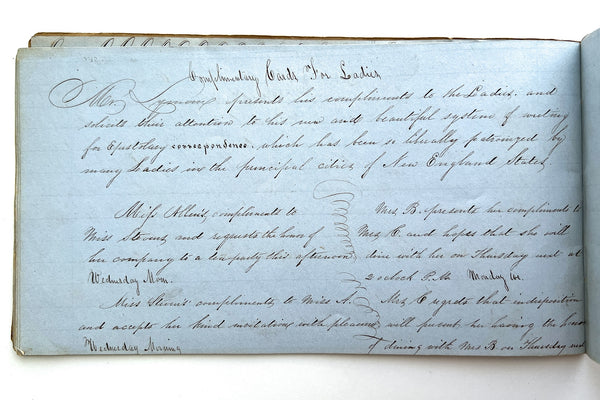 Complimentary Cards For Ladies
Mr. presents his compliments to the Ladies. and
solicits their attention to his new and beautiful system of writing
for Epistolary correspondence, which has been so liberally patronized by
many Ladies in the principal cities of New England States,
Miss Allen's compliments to
Miss Stevens and requests the honor of
her company to a tea party this afternoon
Wednesday Morn.
Miss Steven's compliments to Miss A.
and accepts her kind invitations with pleasure
Wednesday Morning
Mrs B. presents her compliments to
Mrs C. and hopes that she will
dine with her on Thursday next at
2 oclock P.M. Monday
Mrs C regrets that indisposition
will prevent her having the honor
of dining with Mrs B on Thursday next